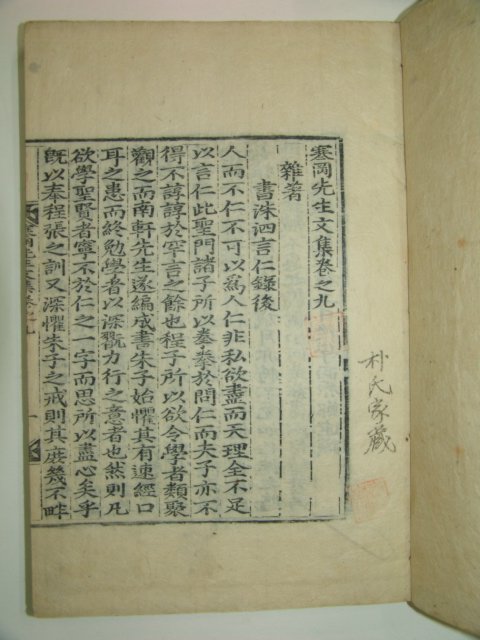 朴氏家藏
寒岡先生文集卷之九
雜著
書洙泗言仁錄後
人而不仁不可以爲人仁非私欲盡而天理全不足
以言仁此聖門諸子所以拳拳於問仁而夫子亦不
得不諄諄於罕言之餘也程子所以欲令學者類聚
觀之而南軒先生遂編成書朱子始懼其有速經口
耳之患而終勉學者以深翫力行之意者也然則凡
欲學聖賢者寧不於仁之一字而思所以盡心矣乎
旣以奉程張之訓又深懼朱子之戒則其庶幾不畔